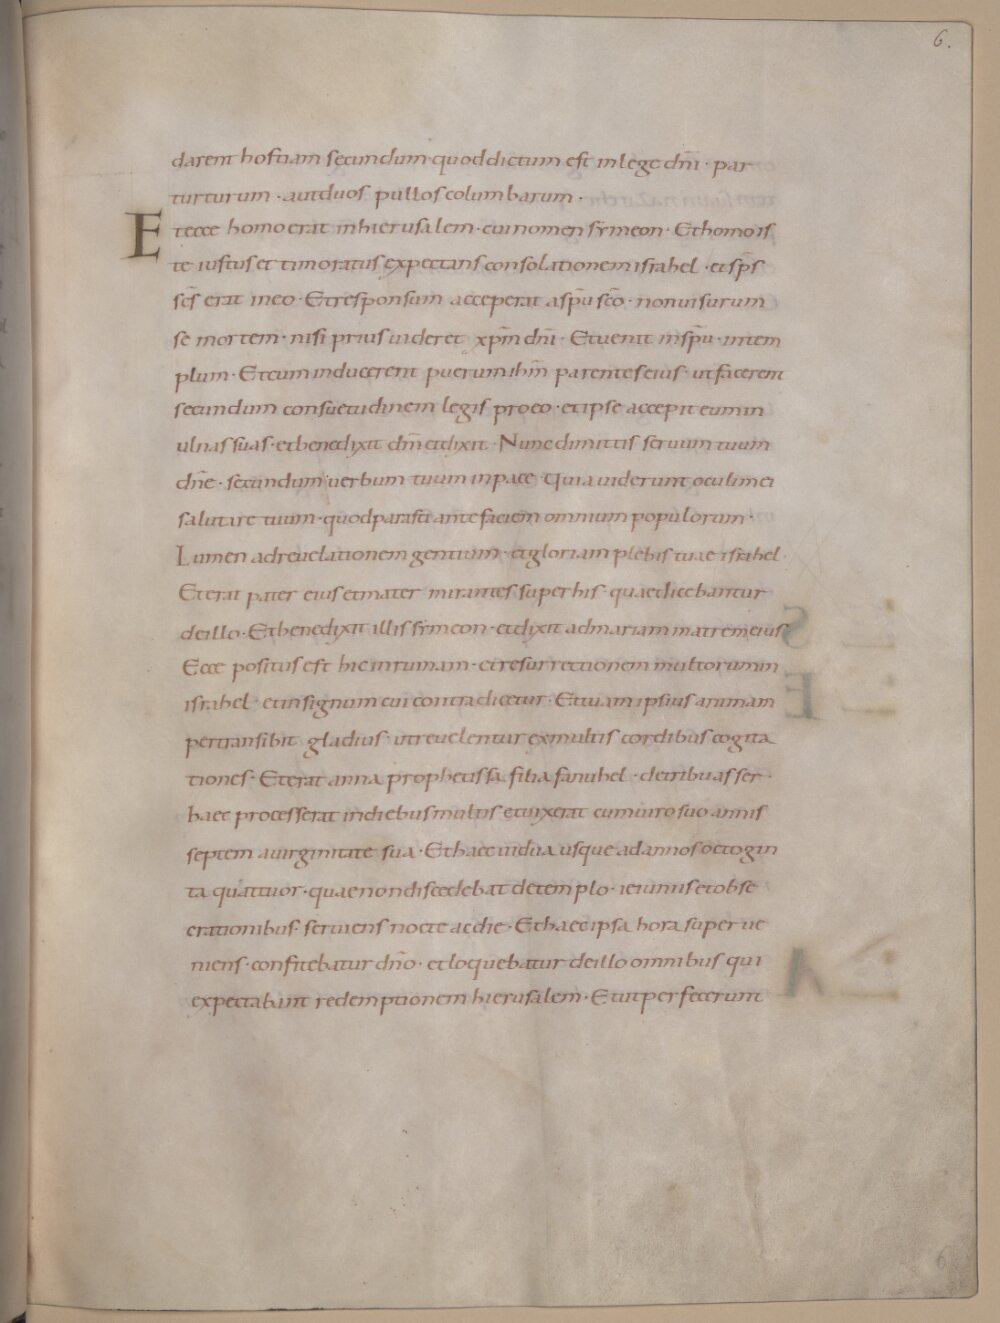 6.
darent hostiam secundum quod dictum est in lege dn̄i · par
turturum · aut duos pullos columbarum ·
Et ecce homo erat in hierusalem · cui nomen symeon · Et homo is
te iustus et timoratus expectans consolationem israhel · et sp̄s
sc̄s erat in eo · Et responsum acceperat a sp̄u sc̄o · non visurum
se mortem · nisi prius uideret xp̄m dn̄i · Et uenit in sp̄u · in tem
plum · Et cum inducerent puerum ih̄m parentes eius · ut facerent
secundum consuetudinem legis pro eo · et ipse accepit eum in
ulnas suas · et benedixit dm̄ et dixit · Nunc dimittis seruum tuum
dn̄e · secundum uerbum tuum in pace · Quia uiderunt oculi mei
salutare tuum · quod parasti ante faciem omnium populorum ·
Lumen ad reuelationem gentium · et gloriam plebis tuae israhel ·
Et erat pater eius et mater mirantes super his · quae dicebantur
de illo · Et benedixit illis symeon · et dixit ad mariam matrem eius
Ecce positus est hic in ruinam · et resurrectionem multorum in
israhel · et in signum cui contradicetur · Et tuam ipsius animam
pertransibit gladius · ut reuelentur ex multis cordibus cogita
tiones · Et erat anna prophetissa filia fanuhel · de tribu asser ·
haec processerat in diebus multis et uixerat cum uiro suo annis
septem a uirginitate sua · Et haec uidua usque ad annos octogin
ta quattuor · quae non discedebat de templo · ieiuniis et obse
crationibus · seruiens nocte ac die · Et haec ipsa hora superue
niens · confitebatur dn̄o · et loquebatur de illo omnibus qui
expectabant redemptionem hierusalem · Et ut perfecerunt
6